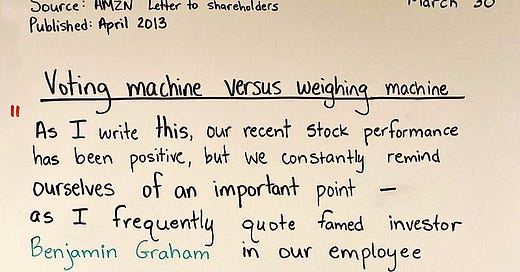 Source: AMZN Letter to shareholders March 30
Published: April 2013
Voting machine versus weighing machine
"
As I write this, our recent stock performance
has been positive, but we constantly remind
ourselves of an important point —
as I frequently quote famed investor
Benjamin Graham in our employee